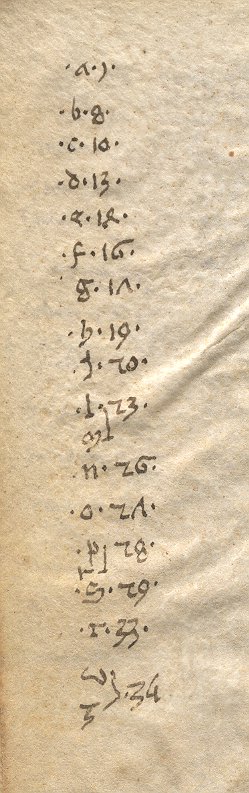 ·a·1·
·b·8·
·c·10·
·d·13·
·e·14·
·f·16·
g·17·
·h·19·
·20·
·l·23·
m
·n·26·
·o·27·
·p 28·
r
·S·29·
·33·
w
·34
z